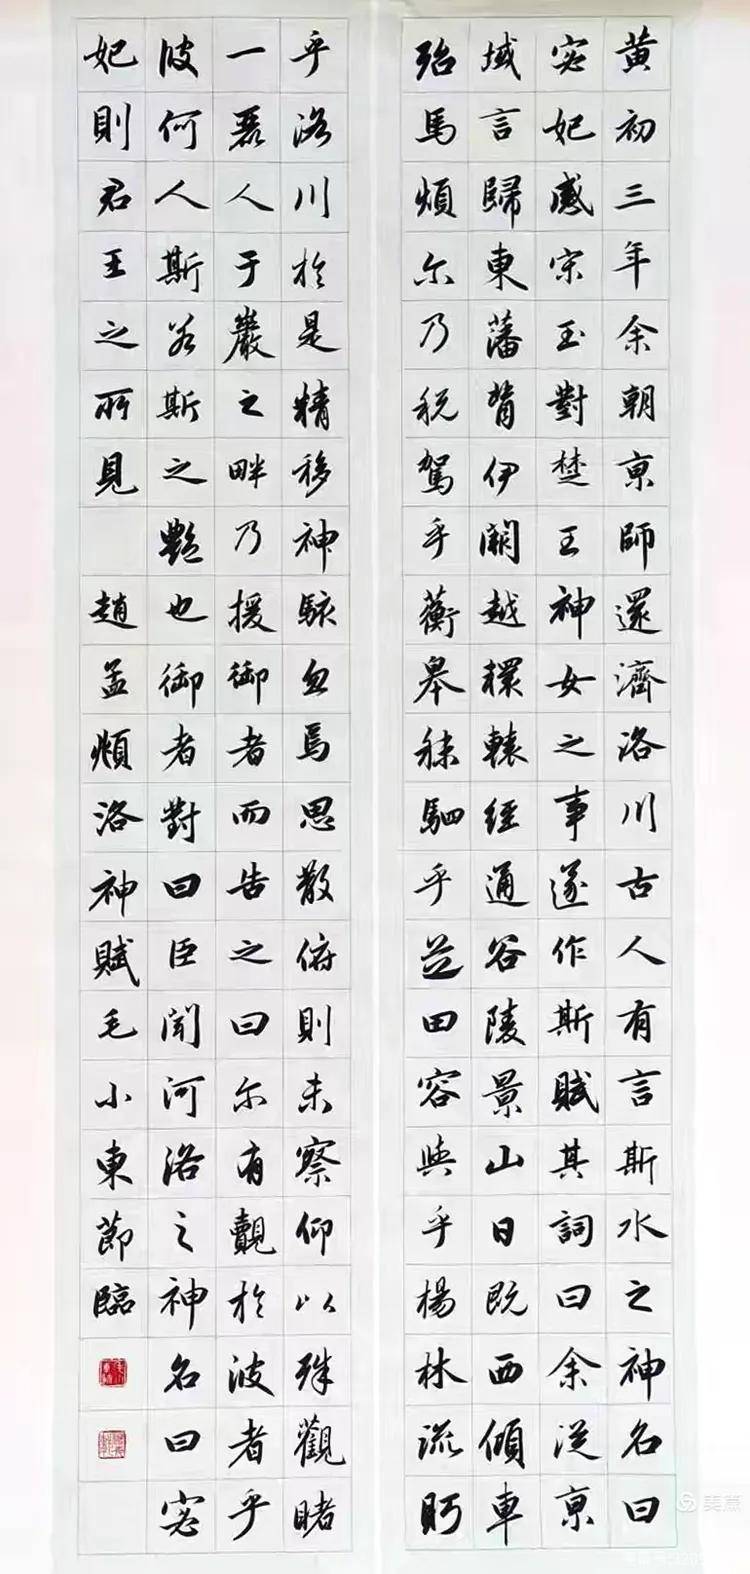 黄初三年余朝京師還濟洛川古人有言斯水之神名曰
宓妃感宋玉對楚王神女之事遂作斯賦其詞曰余從京
域言歸東藩背伊闕越轘轅經通谷陵景山日既西傾車
殆馬煩尔乃税駕乎蘅皋秣駟乎芝田容與乎楊林流眄
乎洛川於是精移神駭忽焉思散俯則未察仰以殊觀睹
一麗人于巖之畔乃援御者而告之曰尔有覿於彼者乎
彼何人斯若斯之艷也御者對曰臣聞河洛之神名曰宓
妃則君王之所見 趙孟頫洛神賦毛小東節臨
美篇